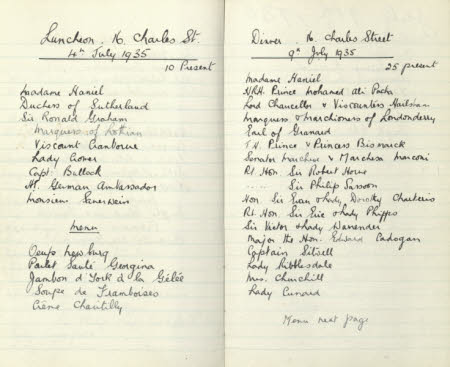 Luncheon. 16. Charles St.
4th July 1935
10 Present
Madame Haniel
Duchess of Sutherland
Sir Ronald Graham
Marquess of Lothian
Viscount Cranborne
Lady Cromer
Capt. Bullock
H.E. German Ambassador
Monsieur Sauerwein
Menu
Oeufs Newburg
Poulet Sauté Georgina
Jambon d'York à la Gelée
Soupe de Framboises
Crème Chantilly
Dinner. 16. Charles Street
9th July 1935
25 present
Madame Haniel
H.R.H. Prince Mohamed Ali Pacha
Lord Chancellor & Viscountess Hailsham
Marquess & Marchioness of Londonderry
Earl of Granard
T.H. Prince & Princess Bismarck
Senator Marchese & Marchesa Marconi
Rt Hon Sir Robert Horne
..... Sir Philip Sassoon
Hon Sir Evan & Lady Dorothy Charteris
Rt. Hon. Sir Eric & Lady Phipps
Sir Victor & Lady Warrender
Major the Hon. Edward Cadogan
Captain Sitwell
Lady Ribblesdale
Mrs. Churchill
Lady Cunard
Menu next page